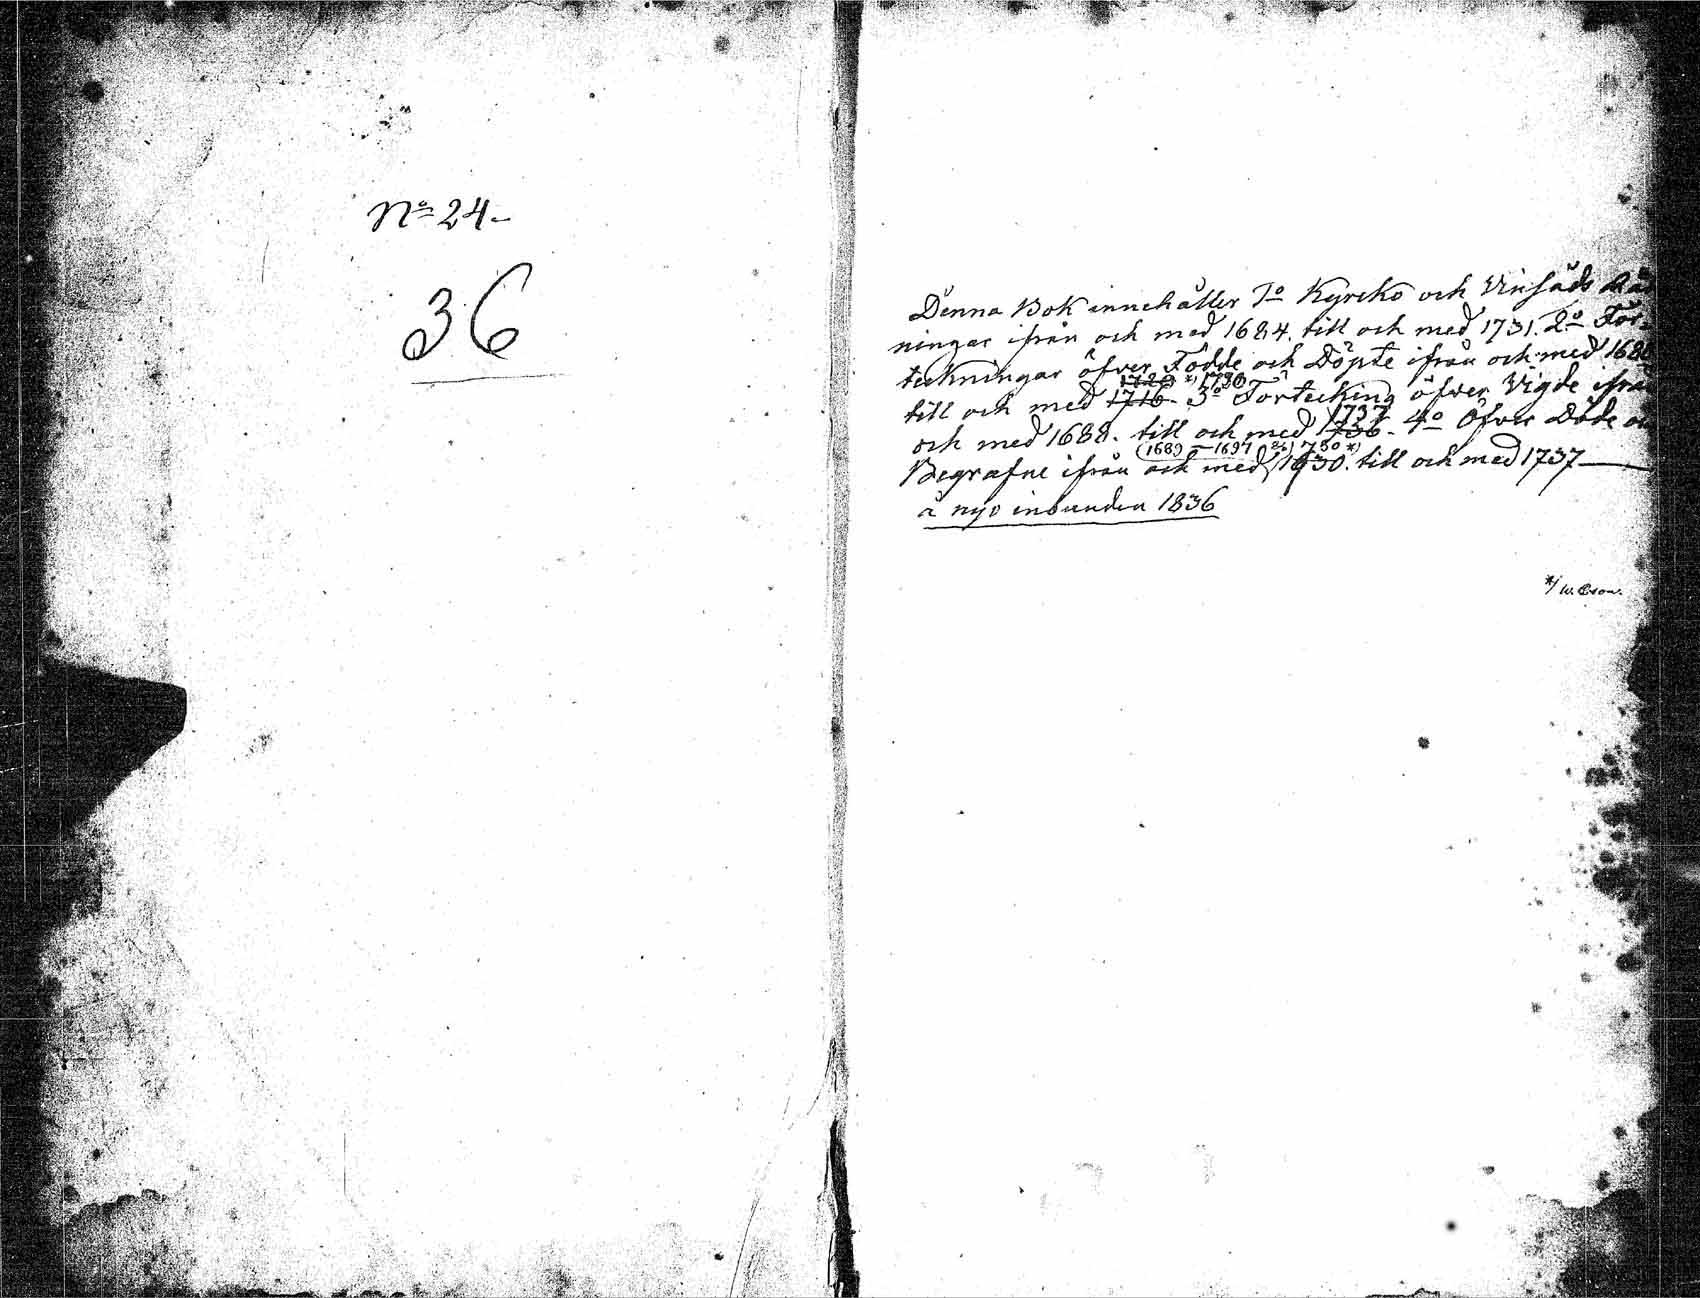 No 24.
36
Denna Bok innehåller 1o Kyrcko och Vinsäds Räk
ningar ifrån och med 1684. till och med 1731. 2o För-
teckningar öfver Födde och Döpte ifrån och med 168
1720 *) 1730
till och med 1716. 3o Förteckning öfver Vigde ifrån
1737
och med 1688. till och med 1736. 4o Öfver Döde oc
(1689 – 1697 *)
Begrafne ifrån och med 1730. till och med 1737
å nyo inbunden 1836
*/ W.